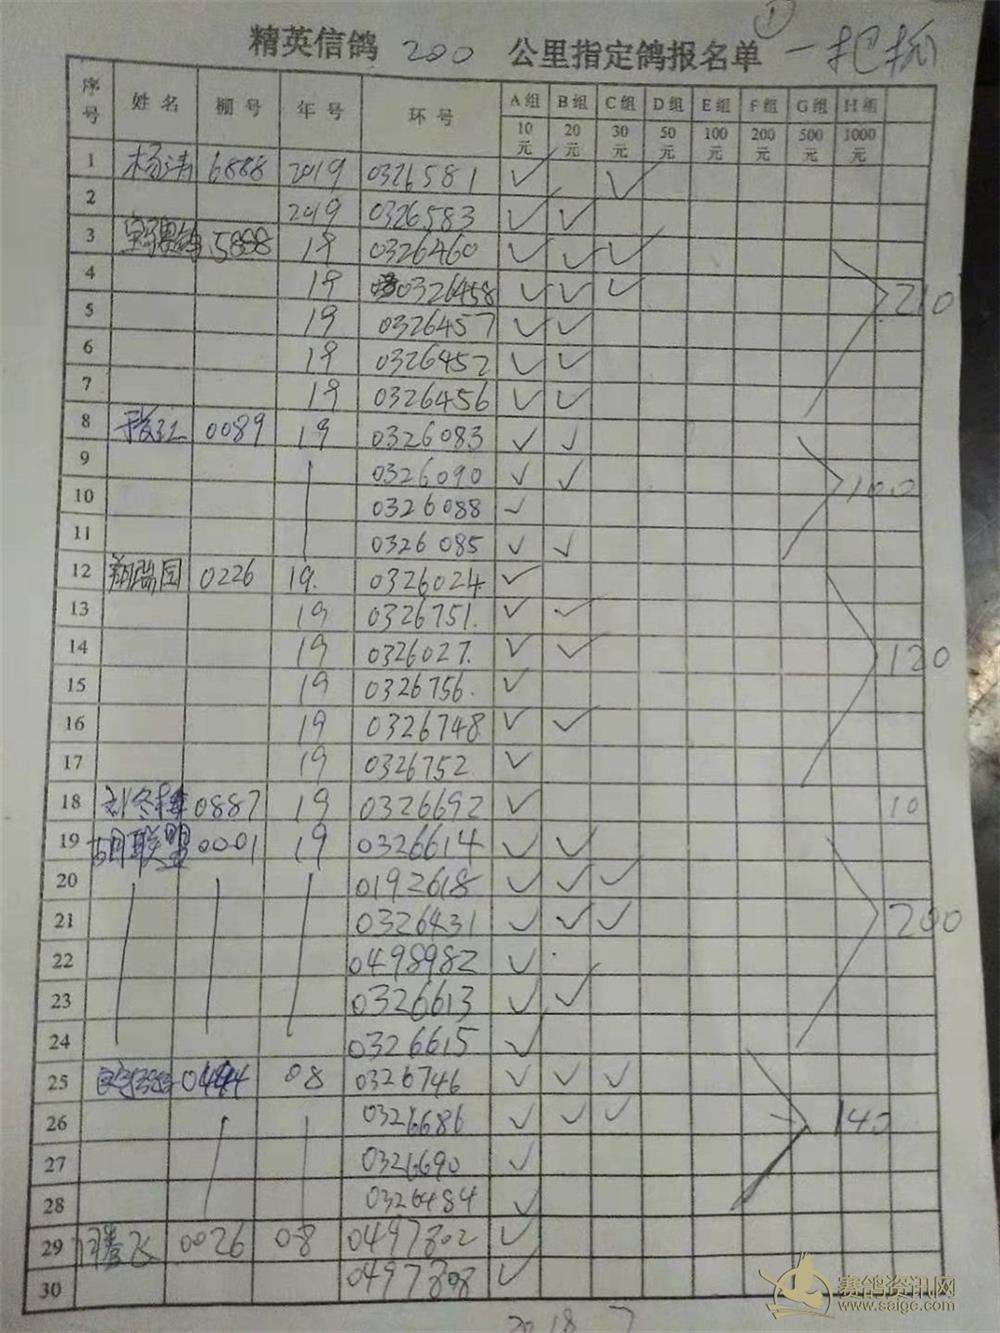 ①
精英信鸽 200 公里指定鸽报名单 一把抓
序号 姓名 棚号 年号 环号 A组 B组 C组 D组 E组 F组 G组 H组
10元 20元 30元 50元 100元 200元 500元 1000元
1 杨涛 6888 2019 0326581 ✓ ✓
2 2019 0326583 ✓ ✓
3 5888 19 0326460 ✓ ✓ ✓
4 19 0326458 ✓ ✓ ✓ 210
5 19 0326457 ✓ ✓
6 19 0326452 ✓ ✓
7 19 0326456 ✓ ✓
8 0089 19 0326083 ✓ ✓
9 0326090 ✓ ✓ 100
10 0326088 ✓
11 0326085 ✓ ✓
12 翔瑞园 0226 19. 0326024 ✓
13 19 0326751. ✓ ✓
14 19 0326027. ✓ ✓ 120
15 19 0326756. ✓
16 19 0326748 ✓ ✓
17 19 0326752 ✓
18 0887 19 0326692 ✓ 10
19 联盟 0001 19 0326614 ✓ ✓
20 0192618 ✓ ✓ ✓
21 0326431 ✓ ✓ ✓ 200
22 0498982 ✓
23 0326613 ✓ ✓
24 0326615 ✓
25 0444 08 0326746 ✓ ✓ ✓
26 0326686 ✓ ✓ ✓ 140
27 0326690 ✓
28 0326484 ✓
29 闫春飞 0026 08 0497802 ✓
30 0497808 ✓
2018 7
赛鸽资讯网
www.saige.com